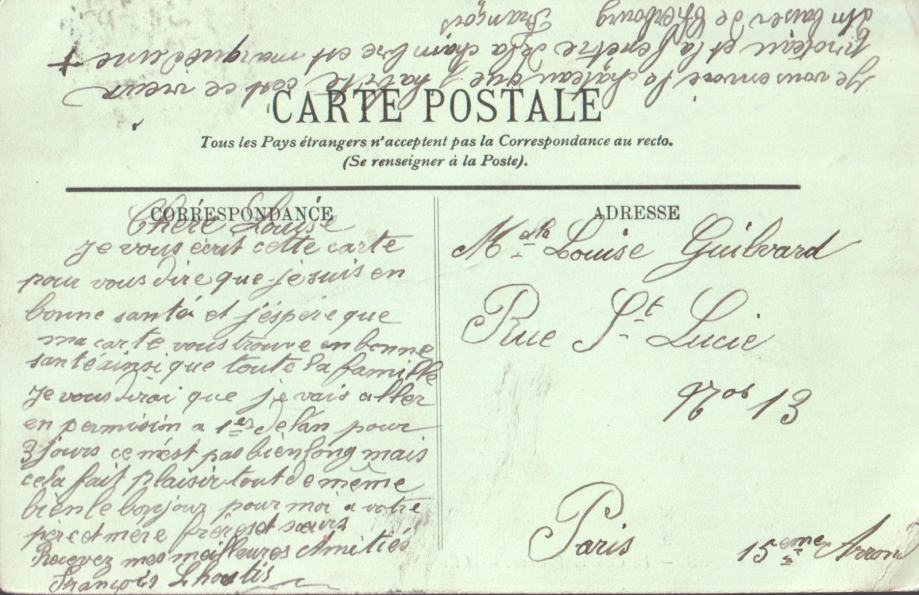 Je vous envoie le château que j'habite c'est ce vieux
et la fenêtre de la chambre est marquée d'une +
Un baiser de Cherbourg
François
CARTE POSTALE
Tous les Pays étrangers n'acceptent pas la Correspondance au recto.
(Se renseigner à la Poste).
CORRESPONDANCE
ADRESSE
Chère Louise
je vous écrit cette carte
pour vous dire que je suis en
bonne santé et j'éspère que
ma carte vous trouve en bonne
santé ainsi que toute la famille
je vous dirai que je vais aller
en permision a 1er de l'an pour
3 jours ce n'ést pas bien long mais
cela fait plaisir tout de même
bien le bonjour pour moi a votre
père et mére fréres et sœurs
Recevez mes meilleures Amitiés
François
Melle Louise
Rue St Lucie
Nos 13
Paris
15eme Arron